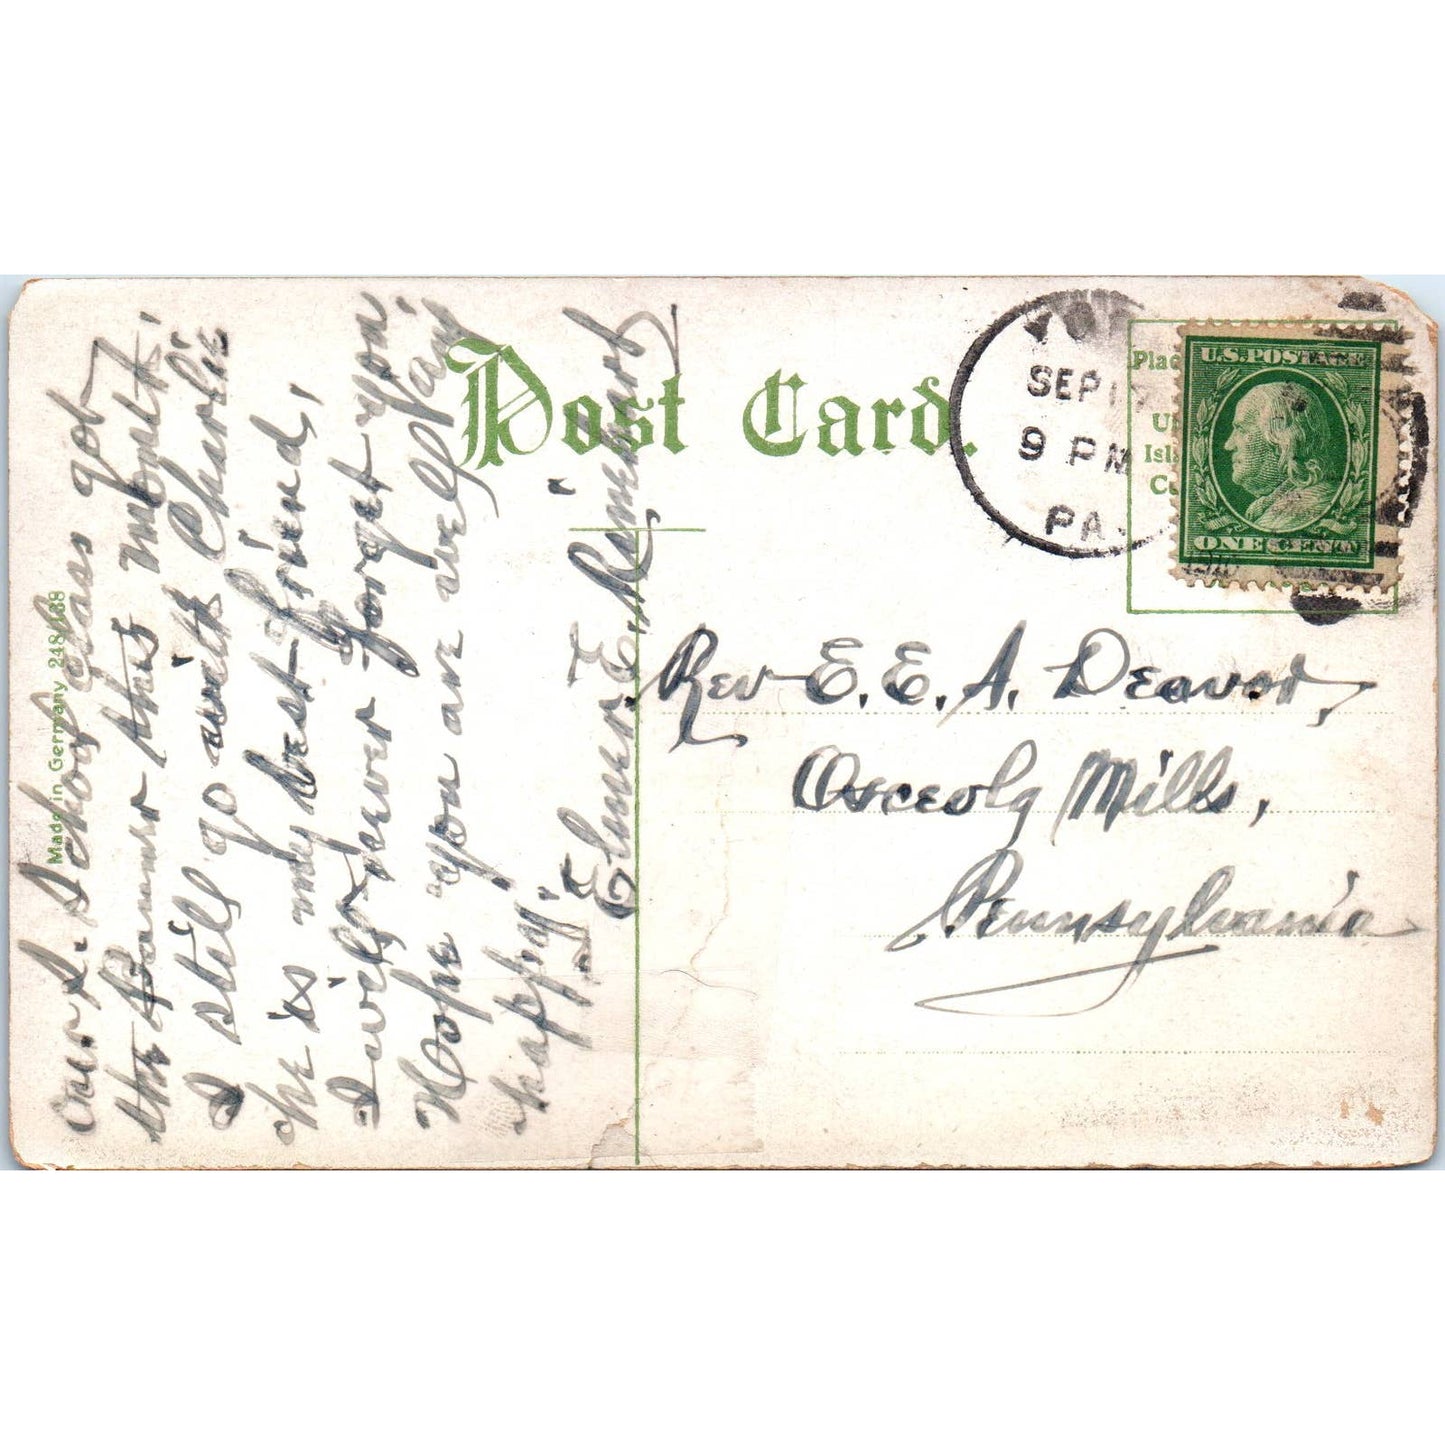 Post Card.
Made in Germany 248
our S. School class got
the Banner this month.
I still go with Charlie
he is my best friend,
I will never forget you.
Hope you are well and
happy.
Elmer E.
SEP 17
9 PM
PA.
Plac
U
Isl
C
U.S.POSTAGE
ONE CENT
Rev E. E. A. Deavor,
Osceola Mills,
Pennsylvania